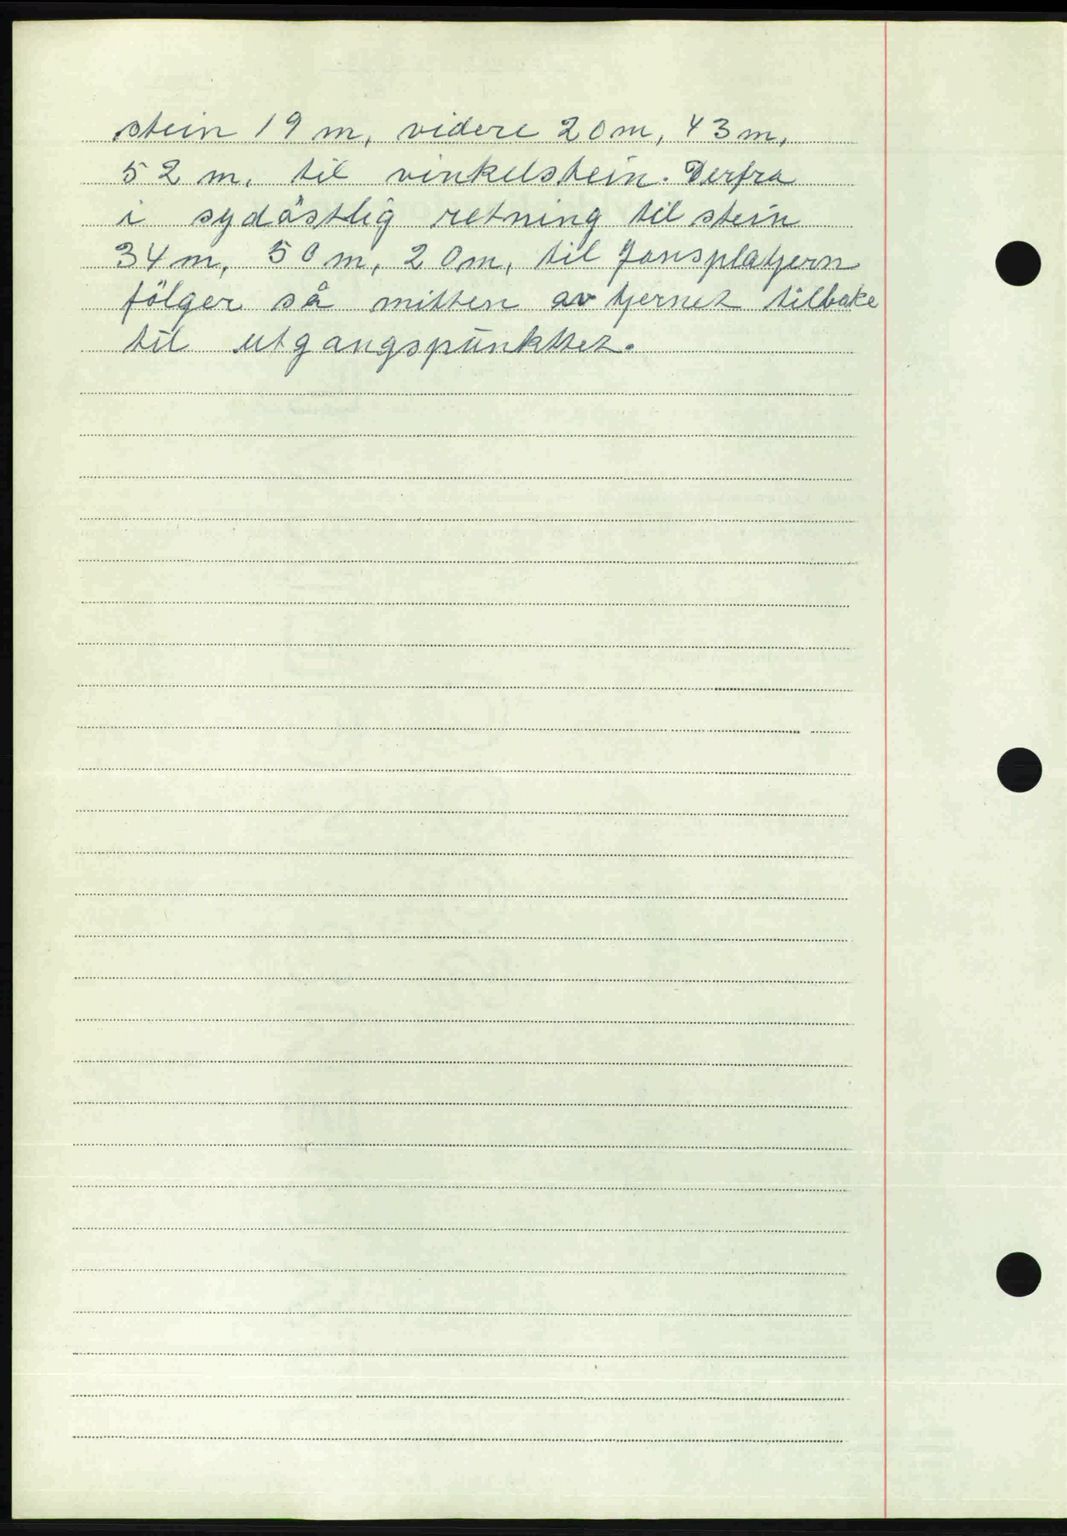 stein 19 m, videre 20m, 43m,
52 m, til vinkelstein. Derfra
i sydöstlig retning til stein
34m, 50m, 20m, til Jonsplatjern
fölger så mitten av tjernet tilbake
til utgangspunkttet.